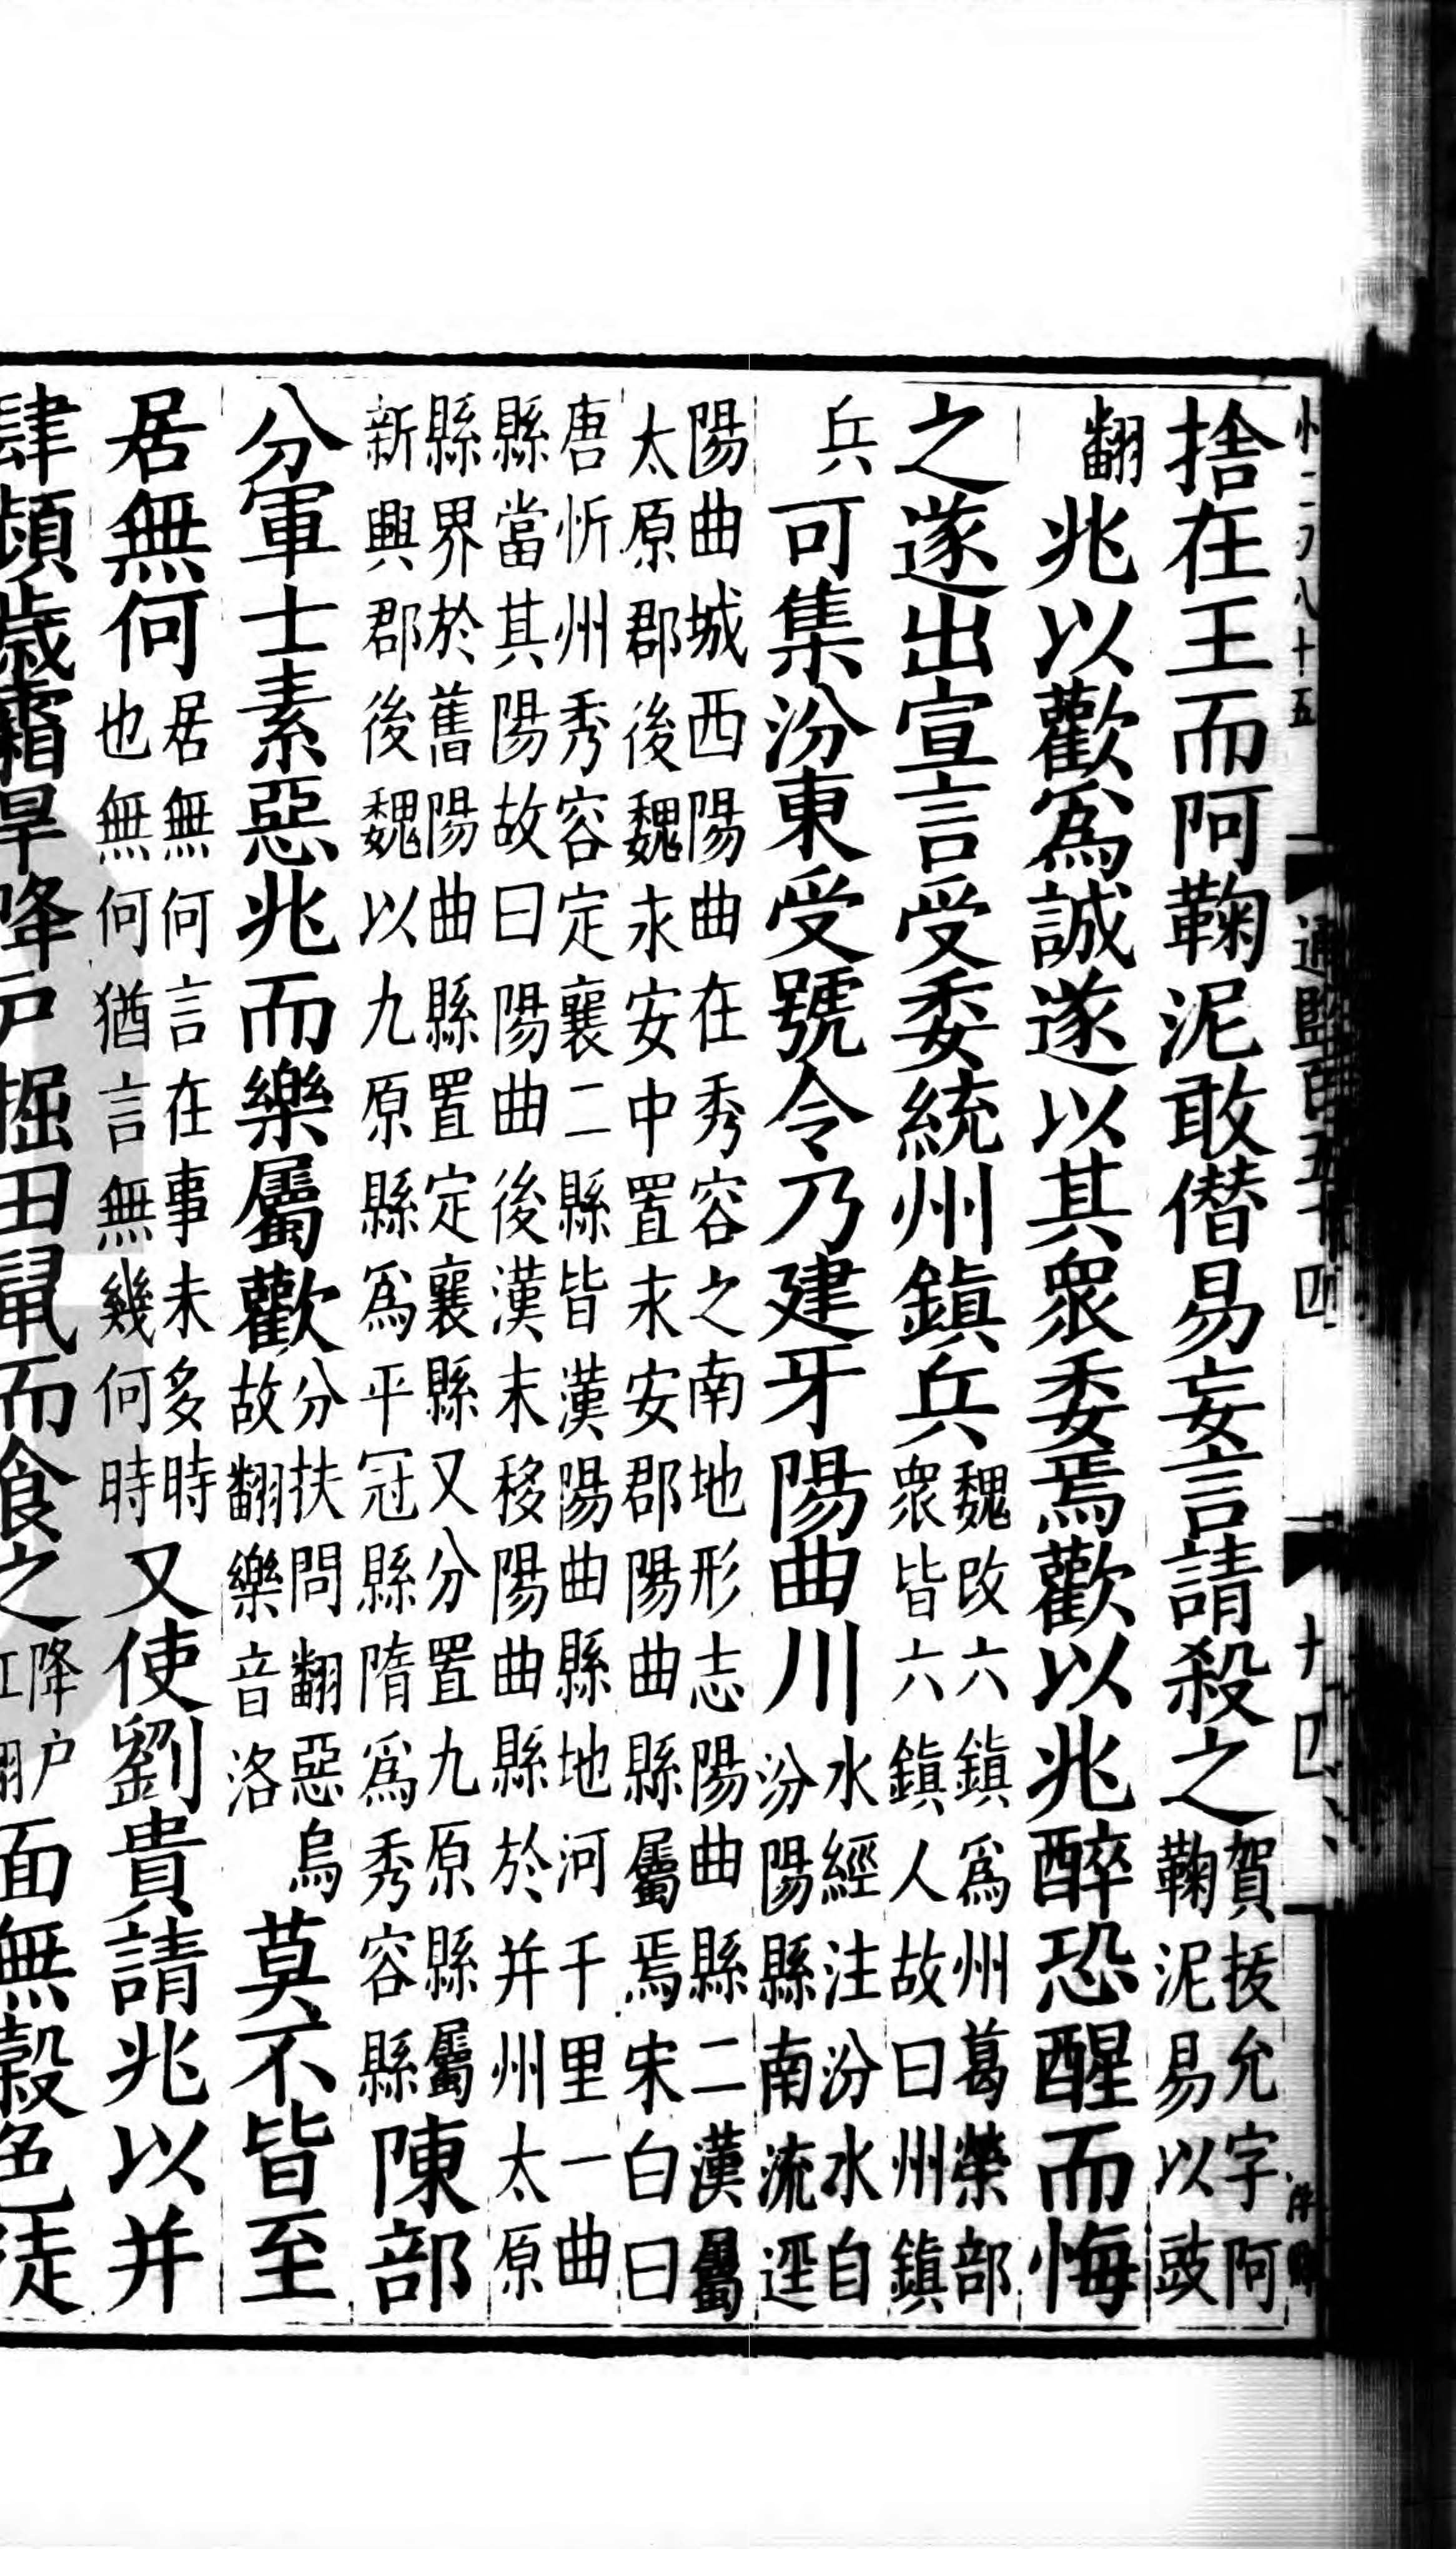 通鑑百五十四　十四
捨在王而阿鞠泥敢僭易妄言請殺之賀拔允字阿鞠泥易以豉
翻兆以歡爲誠遂以其衆委焉歡以兆醉恐醒而悔
之遂出宣言受委統州鎮兵魏改六鎮爲州葛榮部衆皆六鎮人故曰州鎮
兵可集汾東受號令乃建牙陽曲川水經注汾水自汾陽縣南流逕
陽曲城西陽曲在秀容之南地形志陽曲縣二漢屬
太原郡後魏永安中置永安郡陽曲縣屬焉宋白曰
唐忻州秀容定襄二縣皆漢陽曲縣地河千里一曲
縣當其陽故曰陽曲後漢末移陽曲縣於并州太原
縣界於舊陽曲縣置定襄縣又分置九原縣屬新興郡後魏以九原縣爲平冦縣隋爲秀容縣陳部
分軍士素惡兆而樂屬歡分扶問翻惡烏故翻樂音洛莫不皆至
居無何居無何言在事未多時也無何猶言無幾何時又使劉貴請兆以并
肆頻歲霜旱降戶掘田鼠而食之降戶江翻面無穀色徒